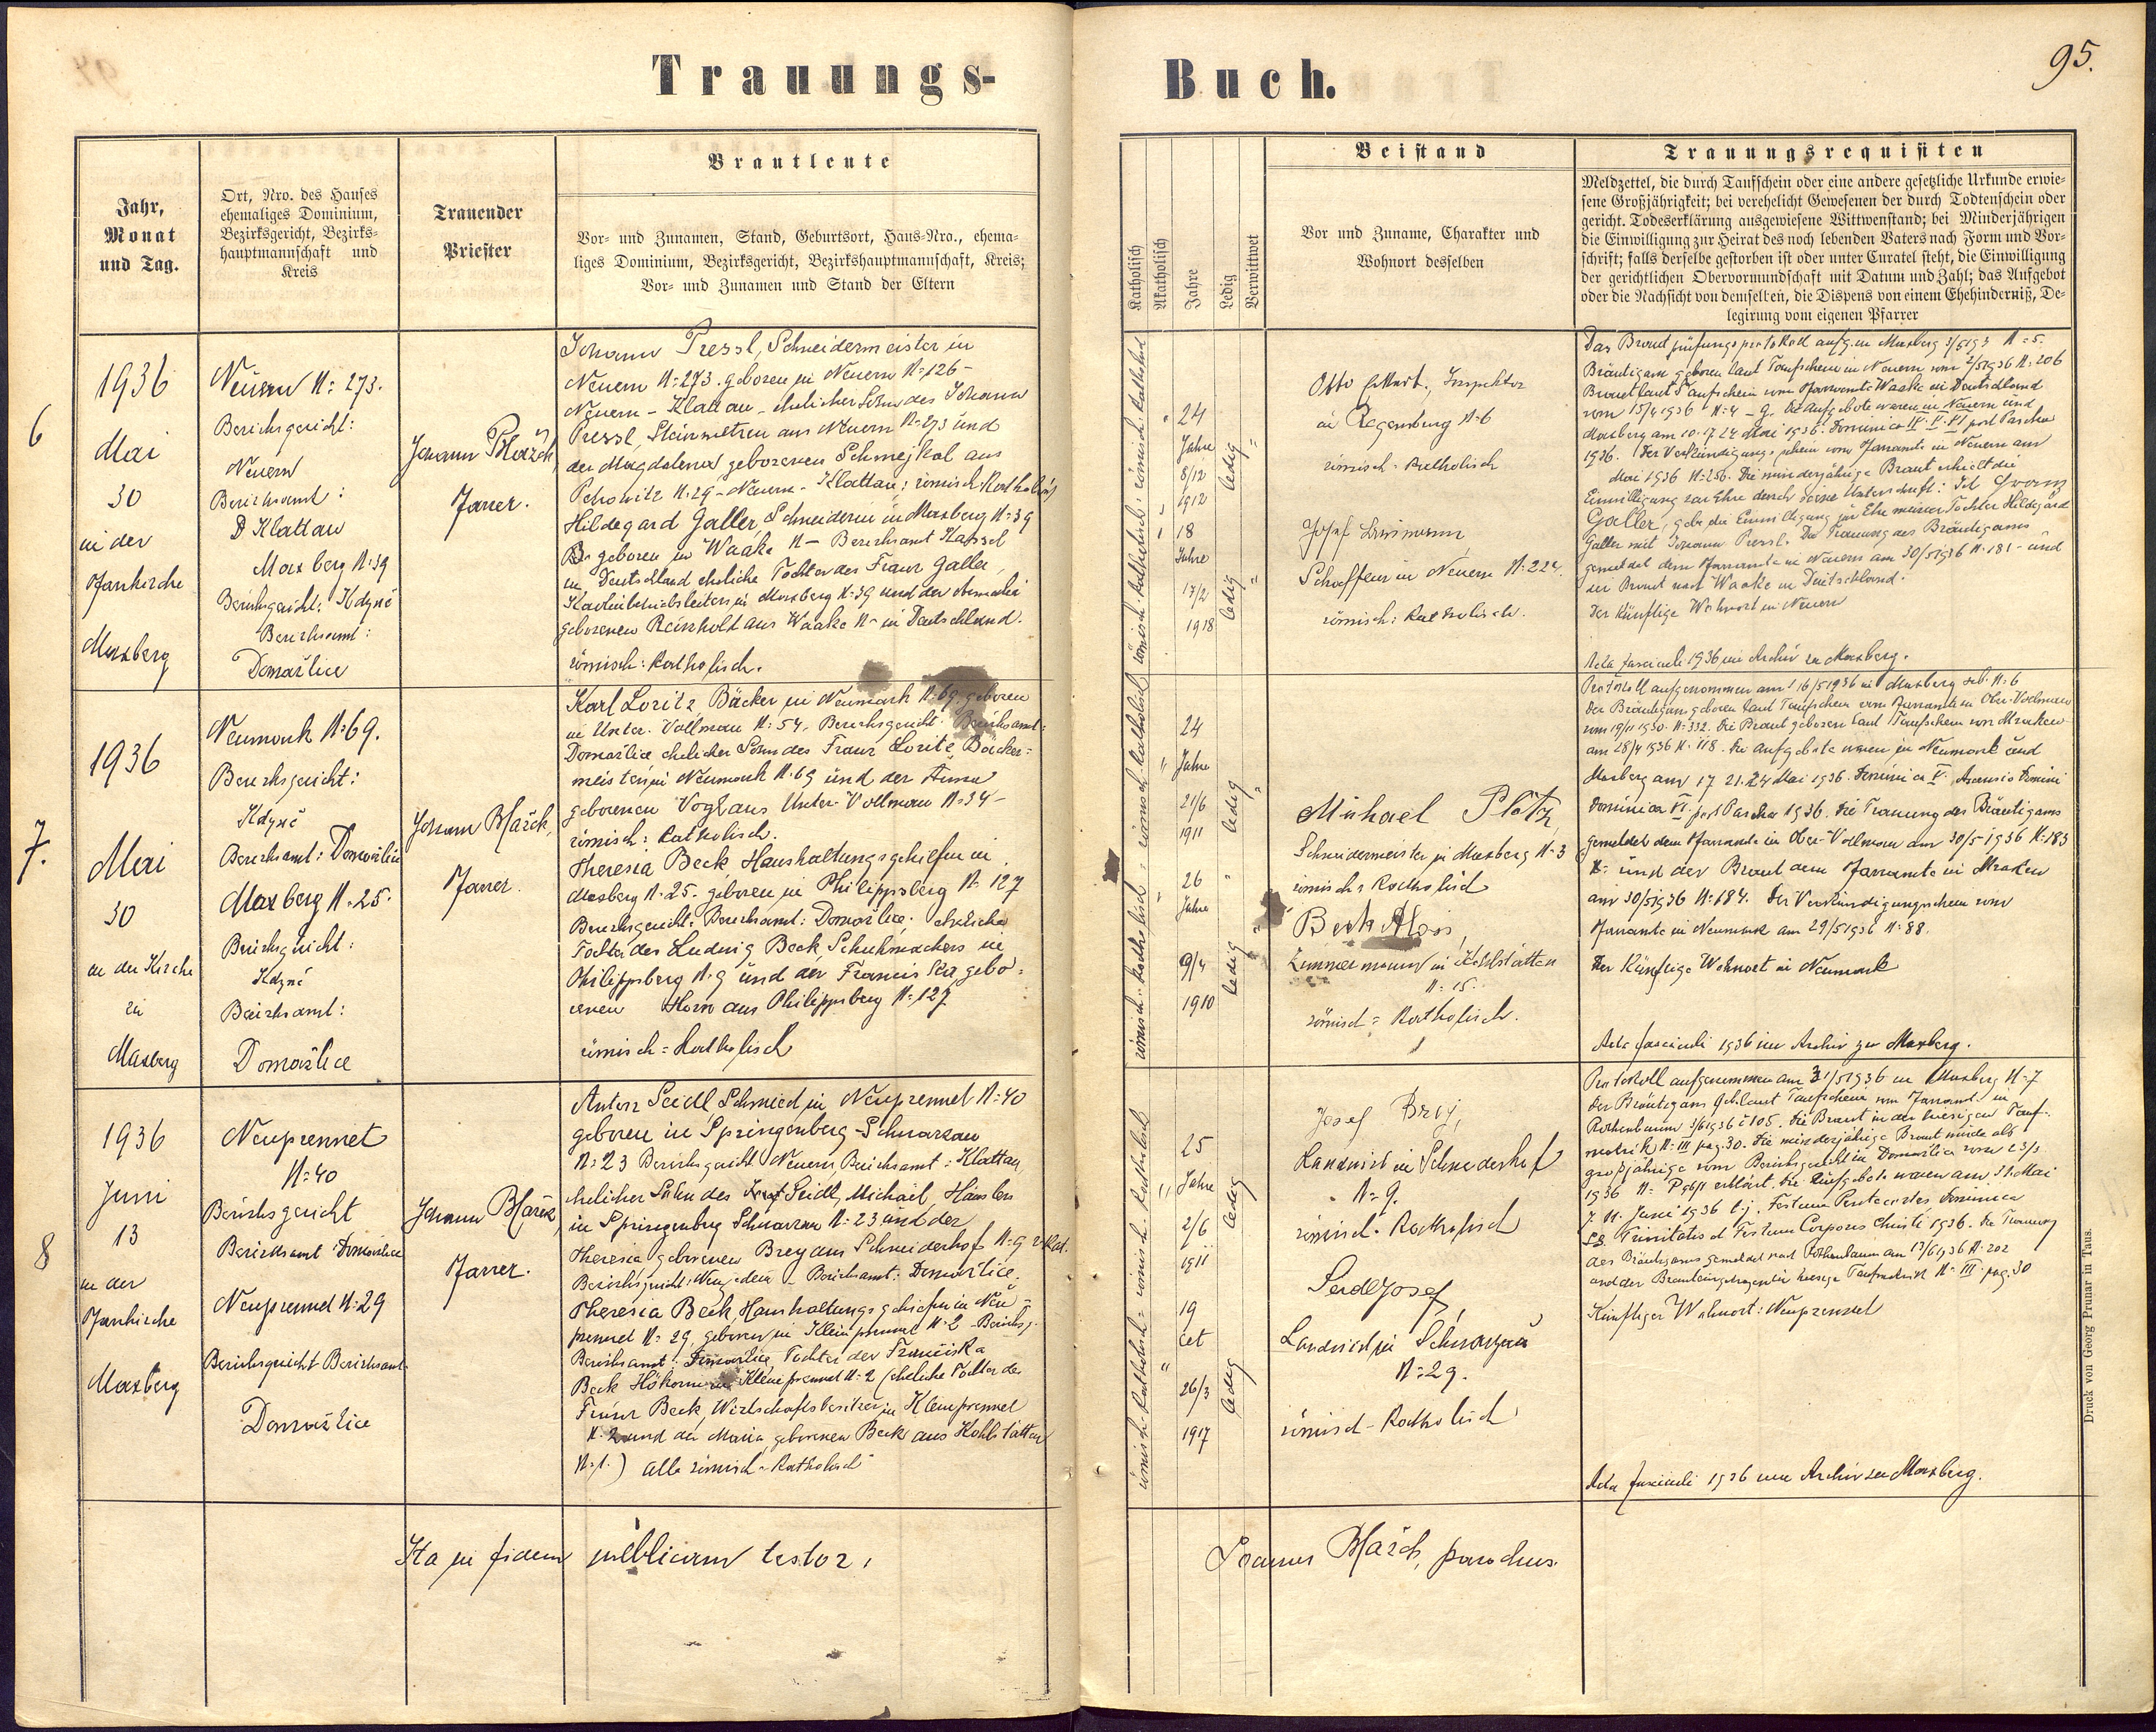 Trauungs-
Buch.
95.
Jahr,
Monat
und Tag.
Ort, Nro. des Hauses
ehemaliges Dominium,
Bezirksgericht, Bezirks-
hauptmannschaft und
Kreis
Trauender
Priester
Brautleute
Vor- und Zunamen, Stand, Geburtsort, Haus-Nro., ehema-
liges Dominium, Bezirksgericht, Bezirkshauptmannschaft, Kreis;
Vor- und Zunamen und Stand der Eltern
Katholisch
Akatholisch
Jahre
Ledig
Verwittwet
Beistand
Vor und Zuname, Charakter und
Wohnort desselben
Trauungsrequisiten
Meldzettel, die durch Taufschein oder eine andere gesetzliche Urkunde erwie-
sene Großjährigkeit; bei verehelicht Gewesenen der durch Todtenschein oder
gericht. Todeserklärung ausgewiesene Wittwenstand; bei Minderjährigen
die Einwilligung zur Heirat des noch lebenden Vaters nach Form und Vor-
schrift; falls derselbe gestorben ist oder unter Curatel steht, die Einwilligung
der gerichtlichen Obervormundschaft mit Datum und Zahl; das Aufgebot
oder die Nachsicht von demselben, die Dispens von einem Ehehinderniß, De-
legirung vom eigenen Pfarrer
6
1936
Mai
30
in der
Pfarrkirche
Maxberg
Neuern N: 273.
Bezirksgericht:
Neuern
Bezirksamt:
Klattau
Maxberg N: 39
Bezirksgericht: Kdyně
Bezirksamt:
Domažlice
Johann
Pfarrer.
Johann Pressl, Schneidermeister in
Neuern N: 273. geboren in Neuern N: 126 -
Neuern - Klattau - ehelicher Sohn des Johann
Pressl, Steinmetzen aus Neuern N: 273 und
der Magdalena geborenen Schmejkal aus
N: 29 - Neuern - Klattau; römisch Katholisch
Hildegard Galler, Schneiderin in Maxberg N: 39
geboren in Waake N - Bezirksamt Kassel
in Deutschland eheliche Tochter des Franz Galler,
in Maxberg N: 39 und der
geborenen Reinhold aus Waake N - in Deutschland.
römisch: Katholisch.
24
Jahre
8/12
1912
ledig
18
Jahre
17/2
1918
ledig
Otto Inspektor
in Regensburg N: 6
römisch: Katholisch
Josef
Schaffeur in Neuern N: 224.
römisch: Katholisch.
Das Brautprüfungsprotokoll aufg. in Maxberg N: 5.
Bräutigam geboren laut Taufschein in Neuern vom 2/5 1936 N: 206
Braut laut Taufschein vom Pfarramte Waake in Deutschland
vom 15/4 1936 N: 4 - 9. Die Aufgebote waren in Neuern und
Maxberg am 10. 17 24 Mai 1936. Dominica IV. V. VI post Pascha
1936. Der Verkündigungsschein vom Pfarramte in Neuern am
Mai 1936 N: 256. Die minderjährige Braut erhielt die
Einwilligung zur Ehe durch Unterschrift: Ich Franz
Galler, gebe die Einwilligung zur Ehe meiner Tochter Hildegard
Galler mit Johann Pressl. Die Trauung des Bräutigams
gemeldet dem Pfarramte in Neuern am 30/5 1936 N: 181 - und
der Braut nach Waake in Deutschland.
Der künftige Wohnort in Neuern
Acta fasciculi 1936 im Archiv zu Maxberg.
7.
1936
Mai
30
in der Kirche
in
Maxberg
Neumark N: 69.
Bezirksgericht:
Kdyně
Bezirksamt: Domažlice
Maxberg N: 25.
Bezirksgericht:
Kdyně
Bezirksamt:
Domažlice
Johann
Pfarrer.
Karl Loritz Bäcker in Neumark N: 69, geboren
in Unter-Vollmau N: 54, Bezirksgericht Bezirksamt:
Domažlice ehelicher Sohn des Franz Loritz Bäcker-
meister in Neumark N: 69 und der Anna
geborenen Vogl aus Unter-Vollmau N: 34 -
römisch: Katholisch.
Theresia Beck Haushaltungsgehilfin in
Maxberg N: 25. geboren in Philippsberg N: 127
Bezirksgericht: Bezirksamt: Domažlice. eheliche
Tochter des Ludwig Beck, Schuhmachers in
Philippsberg N: 9 und der Franciska gebo-
renen Horn aus Philippsberg N: 127
römisch = Katholisch
24
Jahre
21/6
1911
ledig
26
Jahre
9/4
1910
ledig
Michael Plötz,
Schneidermeister in Maxberg N: 3
römisch = Katholisch
Beck Alois,
Zimmermann in Kohlstätten
N: 15.
römisch = Katholisch.
Protokoll aufgenommen am 16/5 1936 in Maxberg sub. N: 6
Der Bräutigam geboren laut Taufschein vom Pfarramte in Ober-Vollmau
vom 19/11 1930. N: 332. Die Braut geboren laut Taufschein von Mraken
am 28/4 1936 N: 118. Die Aufgebote waren in Neumark und
Maxberg am 17 21. 24 Mai 1936. Dominica V. Ascensio Domini
Dominica VI. post Pascha 1936. Die Trauung des Bräutigams
gemeldet dem Pfarramte in Ober-Vollmau am 30/5 1936 N: 183
und der Braut dem Pfarramte in Mraken
am 30/5 1936 N: 184. Der Verkündigungsschein vom
Pfarramte in Neumark am 29/5 1936 N: 88.
Der künftige Wohnort in Neumark
Acta fasciculi 1936 im Archiv zu Maxberg.
8
1936
Juni
13
in der
Pfarrkirche
Maxberg
Neuprennet
N: 40
Bezirksgericht
Bezirksamt Domažlice
Neuprennet N: 29
Bezirksgericht Bezirksamt
Domažlice
Johann
Pfarrer.
Anton Seidl Schmied in Neuprennet N: 40
geboren in Springenberg - Schwarzau
N: 23 Bezirksgericht Neuern, Bezirksamt: Klattau,
ehelicher Sohn des Seidl, Michael, Häusler
in Springenberg Schwarzau N: 23 und der
Theresia geborenen Brey aus Schneiderhof N: 9
Bezirksgericht: - Bezirksamt: Domažlice.
Theresia Beck, Haushaltungsgehilfin in Neu-
prennet N: 29, geboren in Kleinprennet N: 2 - Bezirksg.
Bezirksamt: Domažlice, Tochter der Franciska
Beck Kleinprennet N: 2 (eheliche Tochter des
Franz Beck, Wirtschaftsbesitzer in Kleinprennet
N: 2 und der Maria, geborenen Beck aus Kohlstätten
N: 1.) alle römisch = Katholisch
25
Jahre
2/6
1911
ledig
19
26/3
1917
ledig
Josef Brej,
Landwirt in Schneiderhof
N: 9.
römisch - Katholisch
Seidl Josef,
Landwirt in Schwarzau
N: 29.
römisch - Katholisch
Protokoll aufgenommen am 31/5 1936 in Maxberg N: 7
Der Bräutigam geb. laut Taufschein vom Pfarramt in
Rothenbaum 3/6 1936 č 105. Die Braut in der hiesigen Tauf-
matrik N: III pag. 30. Die minderjährige Braut wurde als
großjährige vom Bezirksgericht in Domažlice vom 23/3
1936 N: erklärt. Die Aufgebote waren am 31. Mai
7. 11. Juni 1936 t.j. Festum Pentecostes Dominica
SS Trinitatis et Festum Corporis Christi 1936. Die Trauung
des Bräutigams gemeldet nach Rothenbaum am 13/6 1936 N: 202
und der Braut eingetragen in hiesige Taufmatrik N: III pag. 30
Künftiger Wohnort: Neuprennet
Acta fasciculi 1936 im Archiv zu Maxberg.
Ita in fidem publicam testor,
Joannes parochus.
Druck von Georg Prunar in Taus.